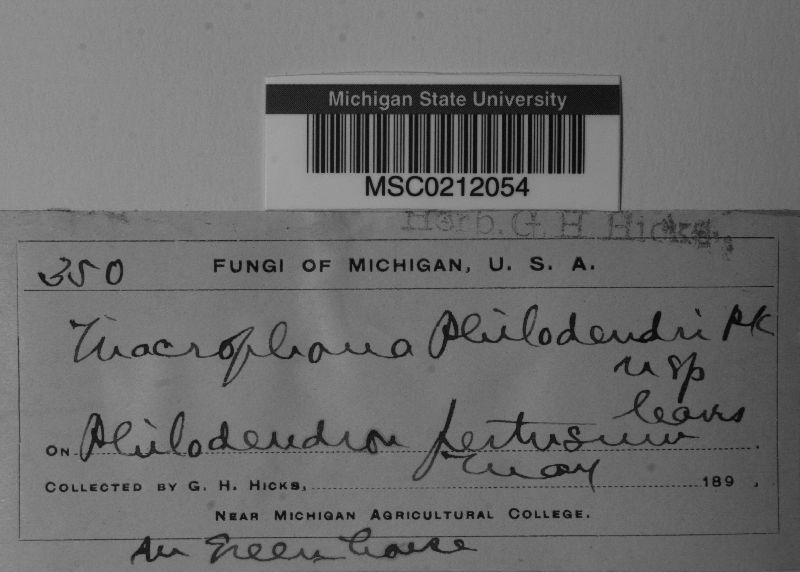 Michigan State University
MSC0212054
Herb. G. H. Hicks.
350 FUNGI OF MICHIGAN, U. S. A.
Macrophoma Philodendri Pk
n sp
leaves
ON Philodendron pertusum
May
COLLECTED BY G. H. HICKS, 189 .
NEAR MICHIGAN AGRICULTURAL COLLEGE.
In Green house